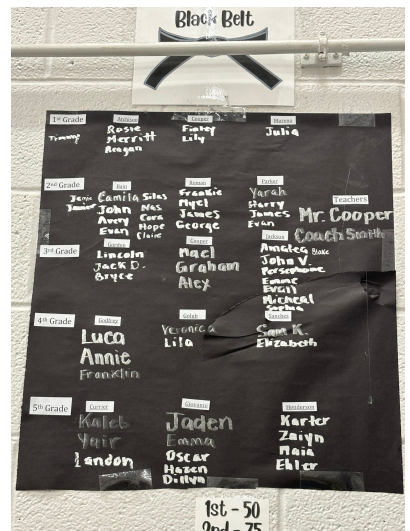 Black Belt
1st Grade
Timmy
Atchison
Rosie
Merritt
Reagan
Cooper
Finley
Lily
Moreno
Julia
2nd Grade
Jamie
Junior
Bain
Camila
John
Avery
Evan
Silas
Nas
Cora
Hope
Claire
Roman
Frankie
Myel
James
George
Parker
Yarah
Harry
James
Evan
Teachers
Mr. Cooper
Coach Smith
3rd Grade
Gorden
Lincoln
Jack D.
Bryce
Cooper
Mael
Graham
Alex
Jackson
Blake
John V.
Persephone
Emme
Evan
Micheal
Sophia
4th Grade
Godfrey
Luca
Annie
Franklin
Golub
Veronica
Lila
Sanchez
Sam K.
Elizabeth
5th Grade
Currier
Kaleb
Yair
Landon
Giovanni
Jaden
Emma
Oscar
Hazen
Dillyn
Henderson
Karter
Zaiyn
Maia
Ehler
1st - 50
2nd - 75